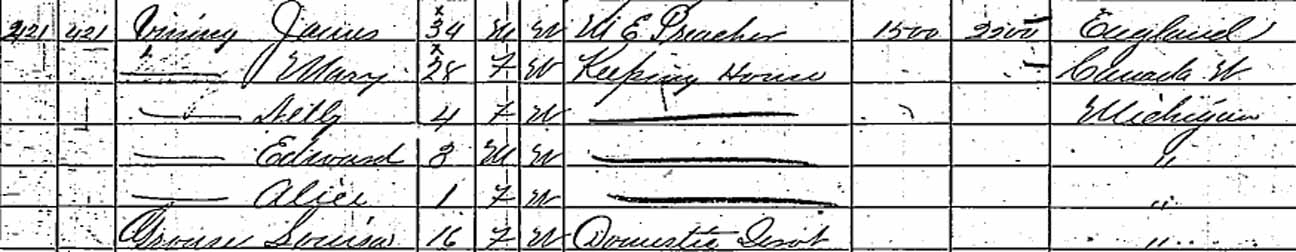 421 421 Vining James 34 M W M E Preacher 1500 2500 England
Mary 28 F W Keeping House Canada W
Nelly 4 F W Michigan
Edward 3 M W "
Alice 1 F W "
Louisa 16 F W Domestic Servt "